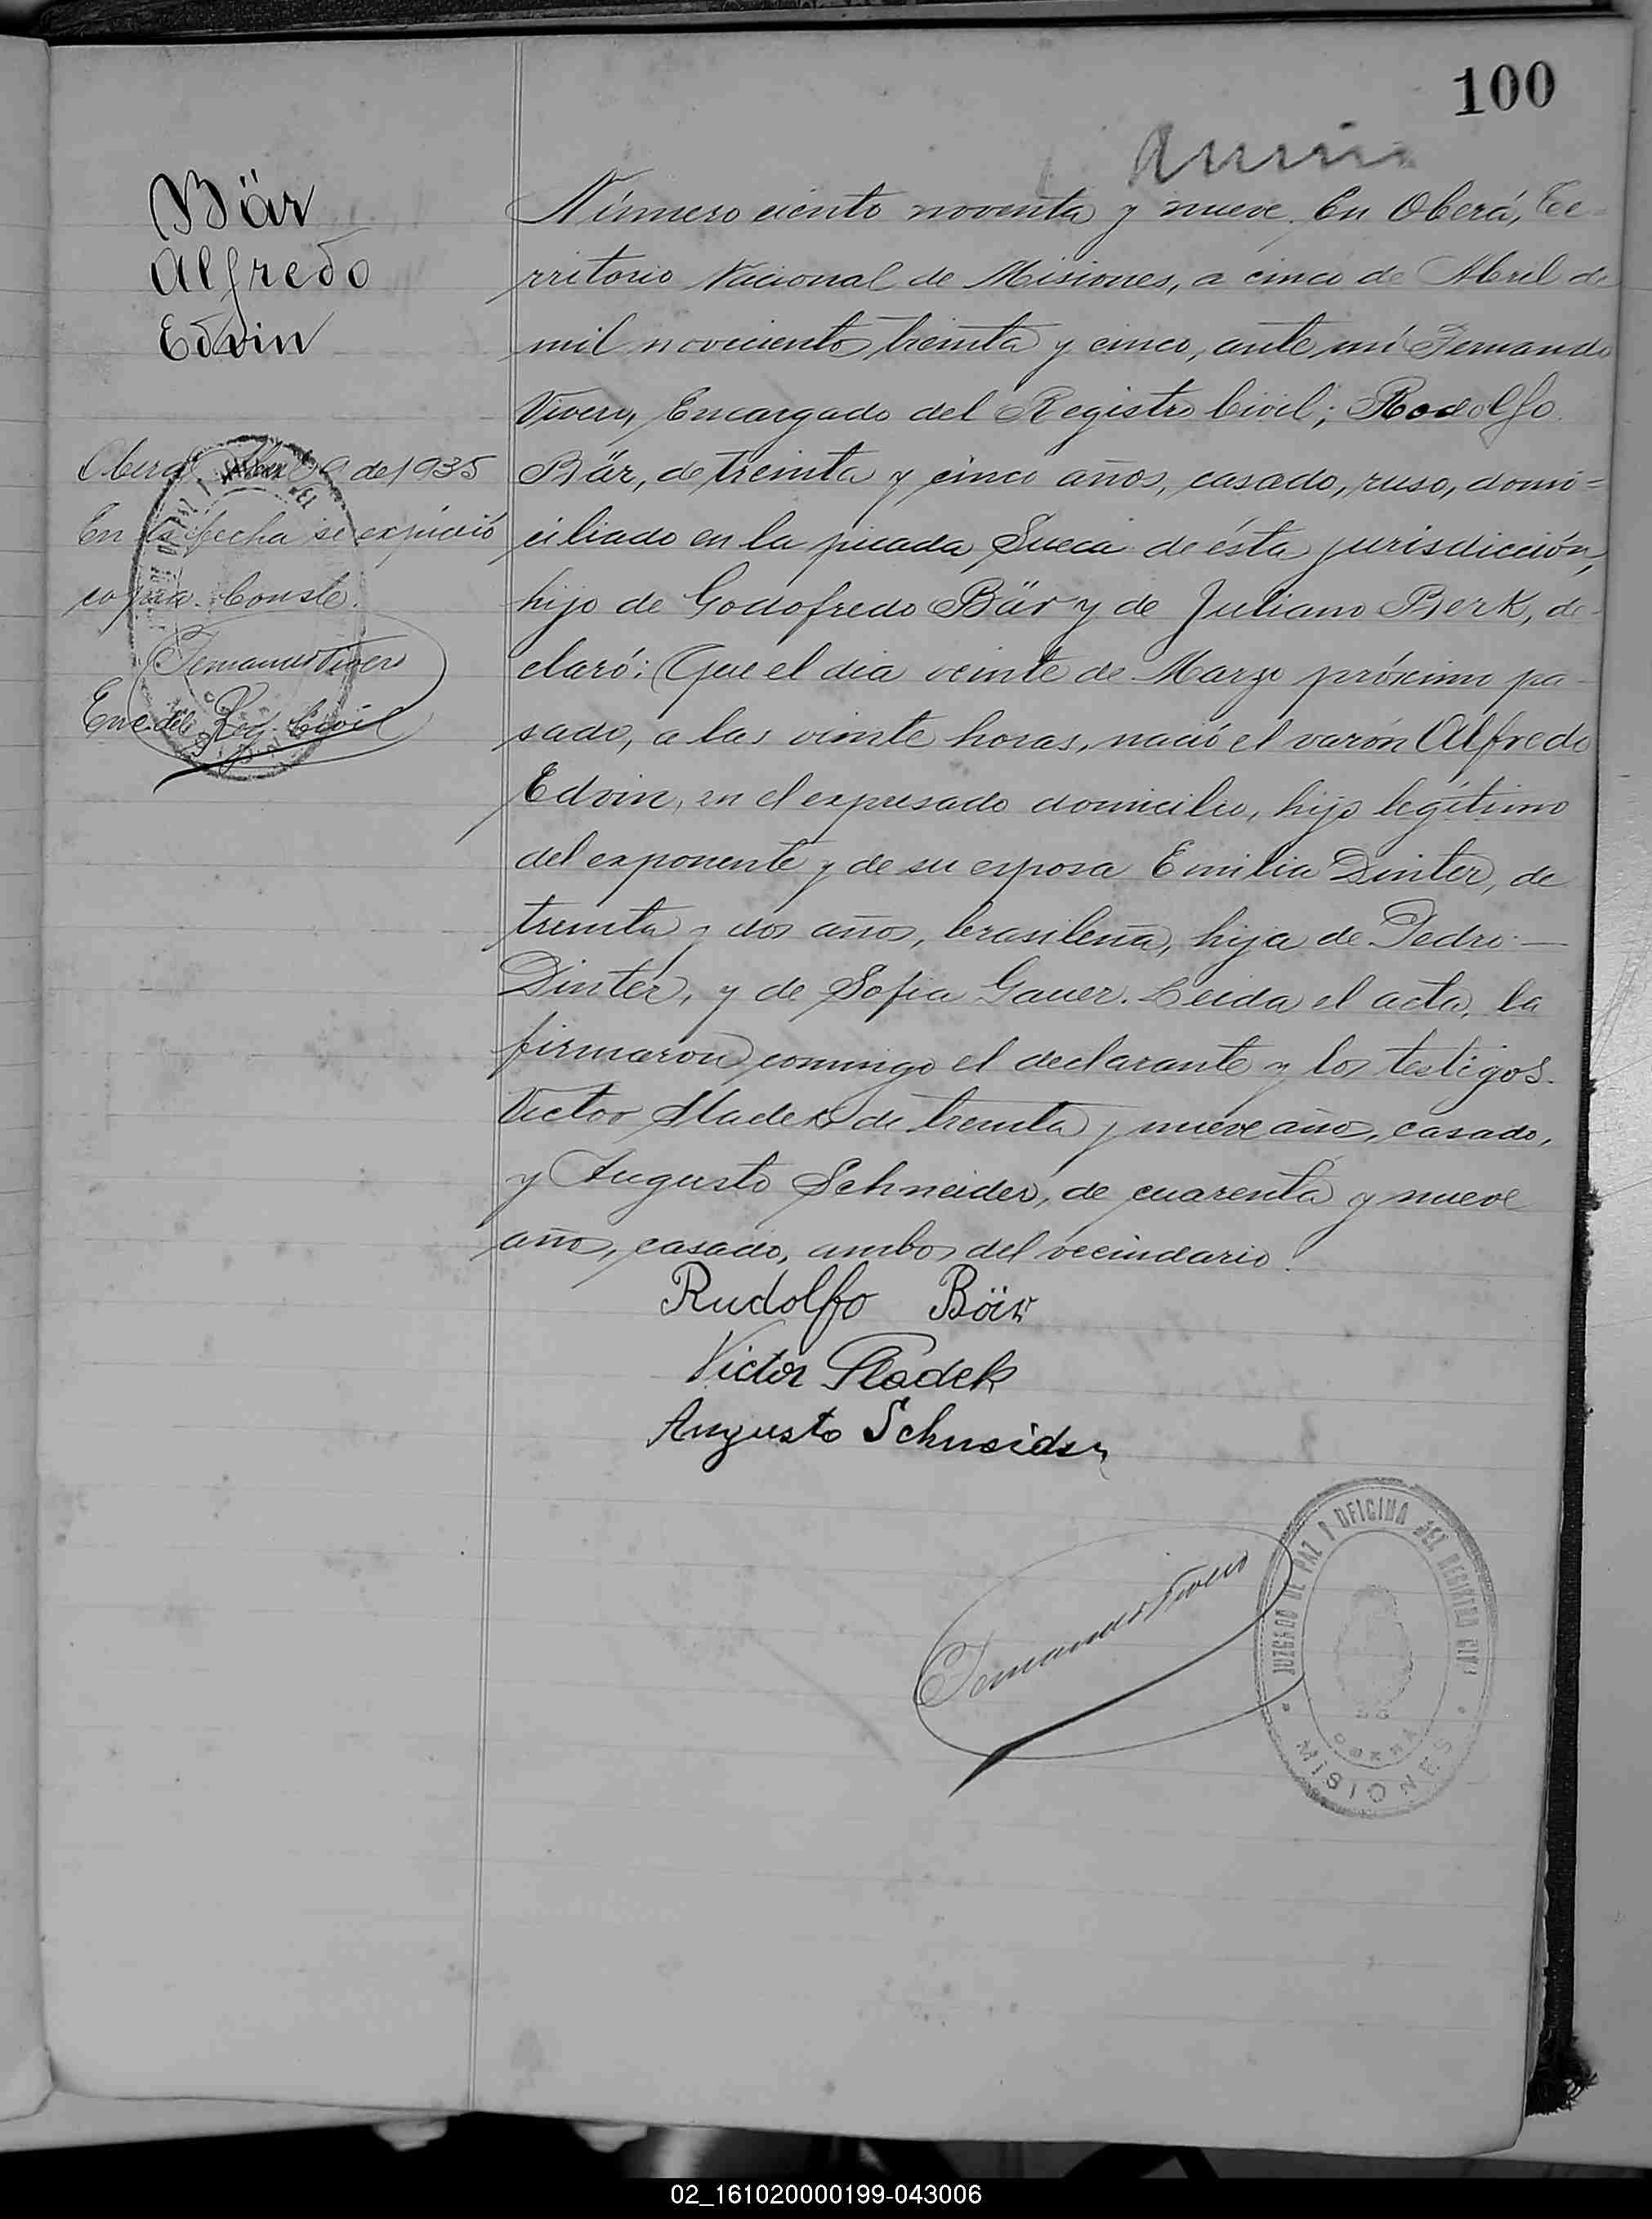 100
Bär
Alfredo
Edvin
Oberá Abril 9 de 1935
En la fecha se expidió
copia. Conste.
Fernando Vivero
Enc. del Reg. Civil
Número ciento noventa y nueve. En Oberá, Te-
rritorio Nacional de Misiones, a cinco de Abril de
mil novecientos treinta y cinco, ante mí Fernando
Vivero, Encargado del Registro Civil; Rodolfo
Bär, de treinta y cinco años, casado, ruso, domi=
ciliado en la picada Sueca de ésta jurisdicción,
hijo de Godofredo Bär y de Juliano Berk, de-
claró: Que el dia veinte de Marzo próximo pa-
sado, a las veinte horas, nació el varón Alfredo
Edvin, en el expresado domicilio, hijo legítimo
del exponente y de su esposa Emilia Dinter, de
treinta y dos años, brasileña, hija de Pedro —
Dinter, y de Sofia Gauer. Leida el acta, la
firmaron conmigo el declarante y los testigos
Victor Sladek de treinta y nueve años, casado,
y Augusto Schneider, de cuarenta y nueve
años, casado, ambos del vecindario.
Rudolfo Bär
Victor Sladek
Augusto Schneider
Fernando Vivero
JUZGADO DE PAZ Y OFICINA DEL REGISTRO CIVIL
OBERA
MISIONES
02_161020000199-043006